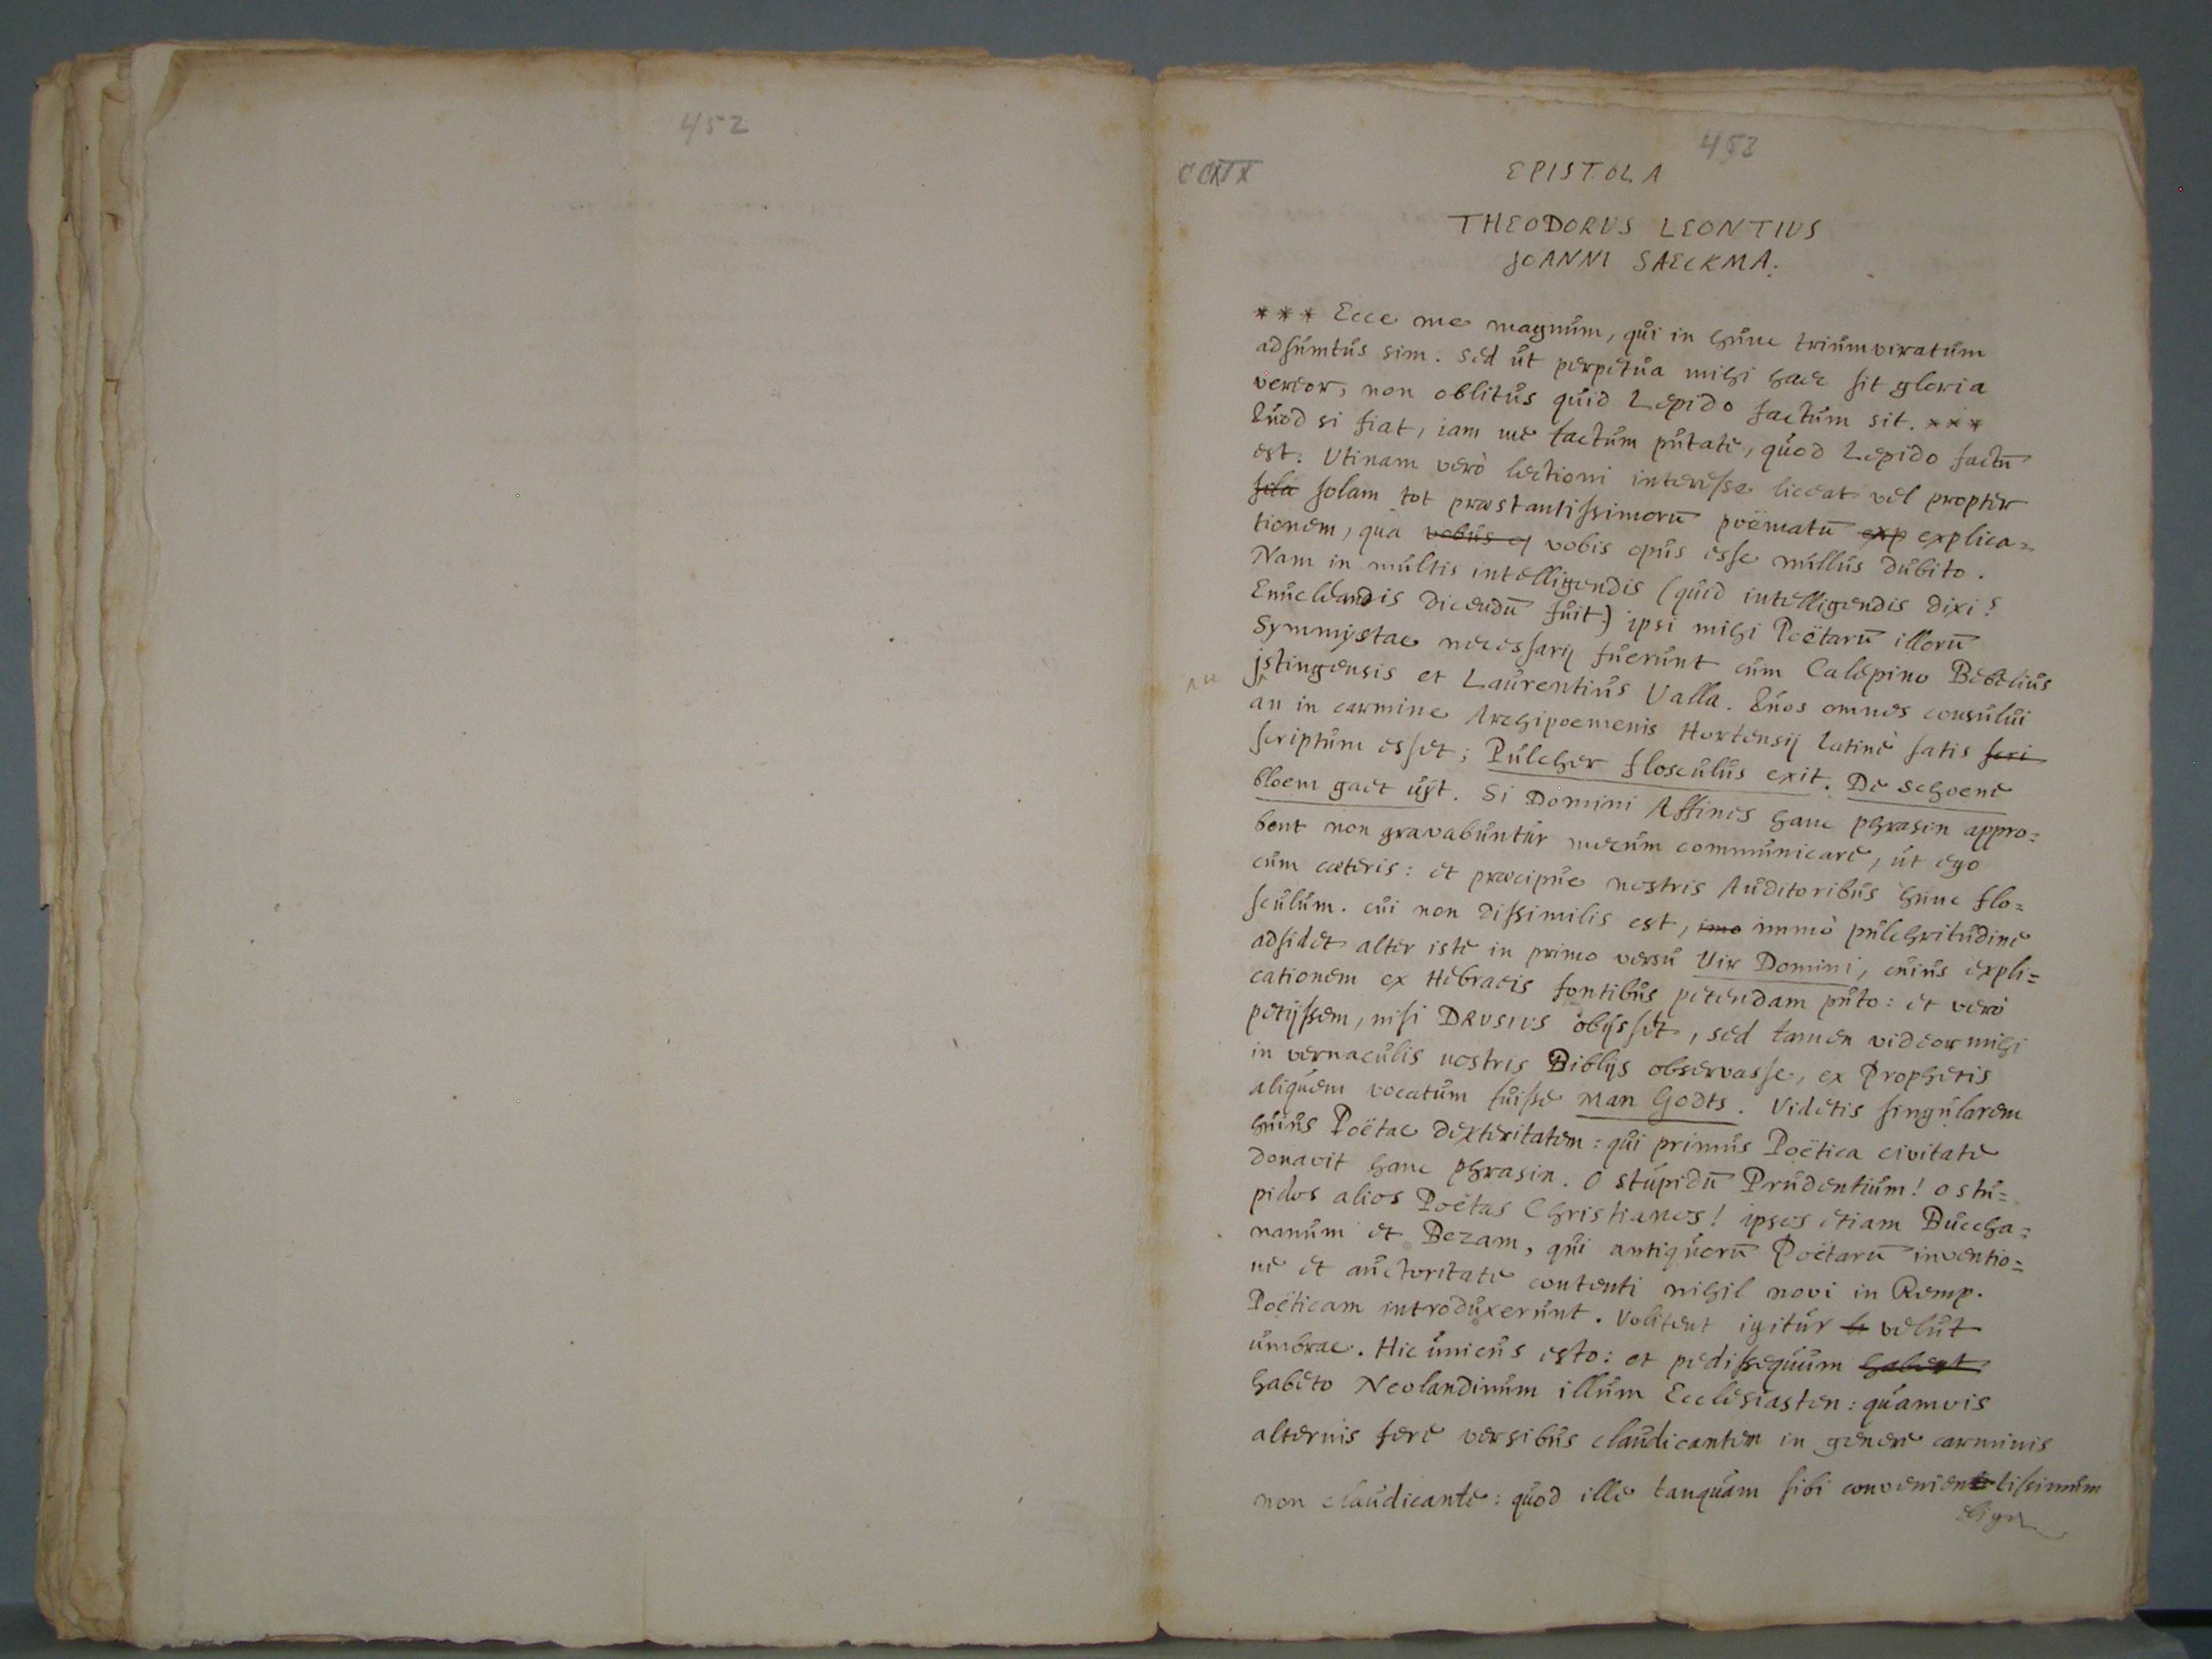 452
453
CCXIX
EPISTOLA
THEODORUS LEONTIUS
JOANNI SAECKMA.
*** Ecce me magnum, qui in hunc triumviratum
adsumtus sim. sed ut perpetua mihi haec sit gloria
vereor, non oblitus quid Lepido factum sit. ***
Quod si fiat, iam me factum putate, quod Lepido factū
est. Utinam verò lectioni interesse liceat vel propter
sola solam tot praestantissimorū poëmatū exp explica=
tionem, qua vobis opus esse nullus dubito.
Nam in multis intelligendis (quid intelligendis dixi?
Enucleandis dicendū fuit) ipsi mihi Poëtarū illorū
Symmystae necessarij fuerunt cum Calepino Bebelius
justingensis et Laurentius Valla. Quos omnes consului
an in carmine Archipoemenis Hortensij latinè satis scri
scriptum esset; Pulcher flosculus exit. De schoene
bloem gaet uÿt. Si Domini Affines hanc phrasin appro=
bent non gravabuntur mecum communicare, ut ego
cum caeteris: et praecipue nostris Auditoribus hunc flo=
sculum. cui non dissimilis est, imo immò pulchritudine
adsidet alter iste in primo versu Vir Domini, cuius expli=
cationem ex Hebraeis fontibus petendam puto: et verò
petijssem, nisi DRUSIUS obijsset, sed tamen videor mihi
in vernaculis nostris Biblijs observasse, ex Prophetis
aliquem vocatum fuisse Man Godts. Videtis singularem
huius Poëtae dexteritatem: qui primus Poëtica civitate
donavit hanc phrasin. O stupidū Prudentium! o stu=
pidos alios Poëtas Christianos! ipsos etiam Buccha=
nanum et Bezam, qui antiquorū Poëtarū inventio=
ne et auctoritate contenti nihil novi in Remp.
Poëticam introduxerunt. Volitent igitur velut
umbrae. Hic unicus esto: et pedissequum habent
habeto Neolandinum illum Ecclesiasten: quamvis
alternis fere versibus claudicantem in genere carminis
non claudicante: quod ille tanquam sibi convenientissimum